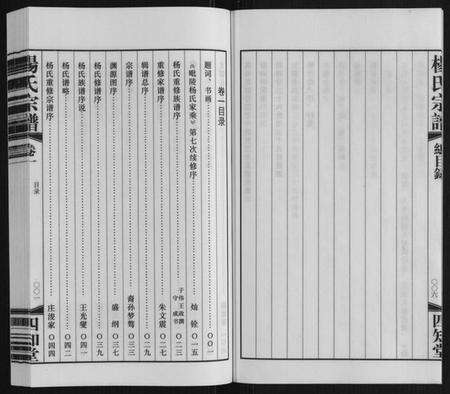 楊氏宗譜
總目錄
〇〇六
四知堂
卷一目录
题词、书画 〇〇一
《毗陵杨氏家乘》第七次续修序 灿铨 〇一五
杨氏重修族谱序 于伟王政撰 守成书 〇二三
重修家谱序 朱文震 〇二七
辑谱总序 〇二九
宗谱序 裔孙梦莺 〇三三
渊源图序 盛纲 〇三七
杨氏修谱序 〇三九
杨氏族谱序说 王光燮 〇四一
杨氏谱略 〇四二
杨氏重修宗谱序 庄浚家 〇四四
楊氏宗譜
卷一
目录
〇〇一
四知堂